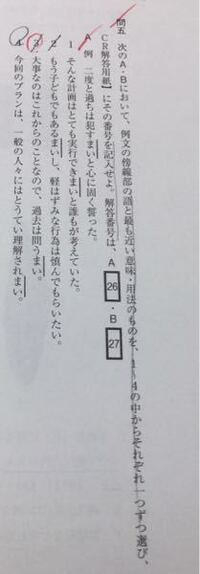 問五 次のA・Bにおいて、例文の傍線部の語と最も近い意味・用法のものを、1～4の中からそれぞれ一つずつ選び、
CR解答用紙】にその番号を記入せよ。解答番号は、A 26 ・B 27
A 例 二度と過ちは犯すまいと心に固く誓った。
1 そんな計画はとても実行できまいと誰もが考えていた。
2 もう子どもでもあるまいし、軽はずみな行為は慎んでもらいたい。
3 大事なのはこれからのことなので、過去は問うまい。
4 今回のプランは、一般の人々にはとうてい理解されまい。